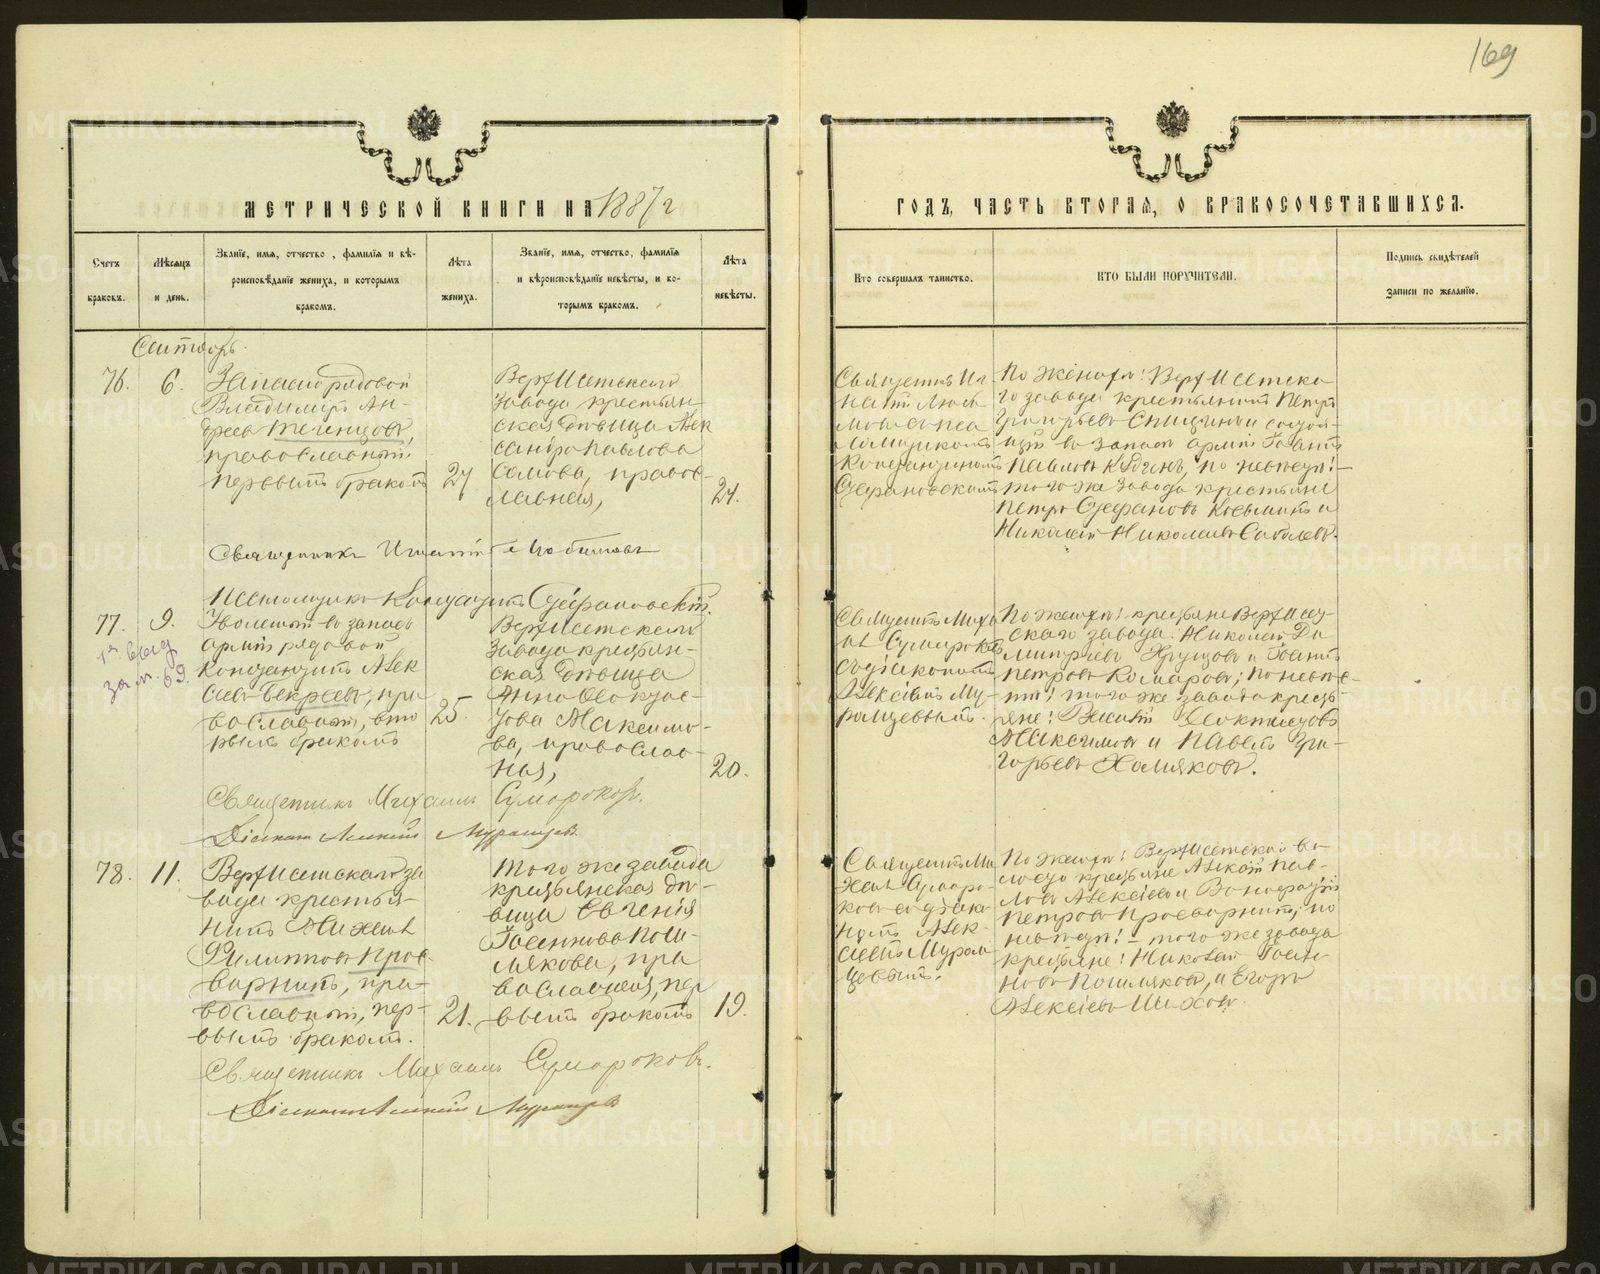 169
МЕТРИЧЕСКОЙ КНИГИ НА 1887 г
ГОДЪ, ЧАСТЬ ВТОРАЯ, О БРАКОСОЧЕТАВШИХСЯ.
Счетъ браковъ.
Мѣсяцъ и день.
Званіе, имя, отчество, фамилія и вѣ-
роисповѣданіе жениха, и которымъ
бракомъ.
Лѣта жениха.
Званіе, имя, отчество, фамилія
и вѣроисповѣданіе невѣсты, и ко-
торымъ бракомъ.
Лѣта невѣсты.
Кто совершалъ таинство.
КТО БЫЛИ ПОРУЧИТЕЛИ.
Подпись свидѣтелей
записи по желанію.
Сентябрь.
76.
6.
рядовой
Владимиръ Ан-
дреевъ
православный,
первымъ бракомъ
27
Верхисетскаго
завода крестьян-
ская дѣвица Алек
сандра Павлова
православная,
21.
Священникъ Иг
натій
псаломщикомъ
Стефановскимъ
По женихѣ: Верхисетска-
го завода крестьянинъ Петръ
Григорьевъ и состоя-
щій въ запасѣ арміи Іоаннъ
Павловъ по невѣстѣ:
того же завода крестьяне
Петръ Стефановъ и
Николай Николаевъ
Священникъ Игнатій
Псаломщикъ Стефановскій.
77.
9.
Уволенный въ запасъ
арміи рядовой
Алек
сѣевъ пра
вославный, вто
рымъ бракомъ
25.
Верхисетскаго
завода крестьян-
ская дѣвица
Анна
Максимо-
ва, православ-
ная,
20.
Священникъ Миха
илъ Сумароковъ
съ діакономъ
Алексіемъ Му-
ромцевымъ.
По женихѣ: крестьяне Верхисет-
скаго завода: Николай Ди
митріевъ Хрущовъ и Іоаннъ
Петровъ Комаровъ; по невѣс-
тѣ: того же завода кресть-
яне:
Максимовъ и Павелъ Гри-
горьевъ Хомяковъ.
Священникъ Михаилъ Сумароковъ.
Діаконъ Алексій Муромцевъ
78.
11.
Верхисетскаго за
вода крестья-
нинъ Михаилъ
Филипповъ Прос-
вирнинъ, пра-
вославный, пер-
вымъ бракомъ.
21.
того же завода
крестьянская дѣ-
вица Евгенія
Іоаннова Пош-
лякова, пра
вославная, пер
вымъ бракомъ
19.
Священникъ Ми
хаилъ Сумаро-
ковъ съ діако-
номъ Алек-
сіемъ Муром
цевымъ.
По женихѣ: Верхисетской во-
лости крестьяне Алексѣй Пав-
ловъ Алексѣевъ и Вонифатій
Петровъ Просвирнинъ; по
невѣстѣ: того же завода
крестьяне: Николай Іоан-
новъ Пошляковъ, и Егоръ
Алексѣевъ
Священникъ Михаилъ Сумароковъ.
Діаконъ Алексій Муромцевъ
METRIKI.GASO-URAL.RU